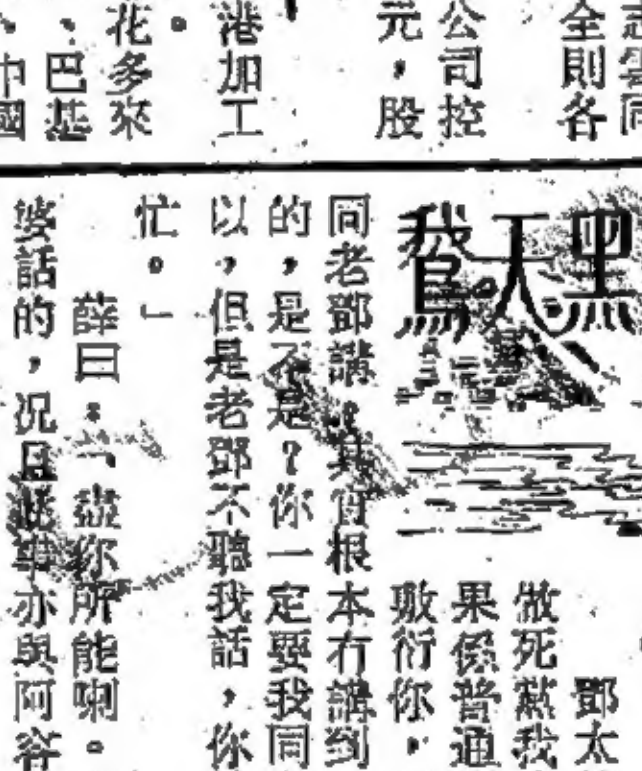 志雲同
全則各
公司控
元，股
港加工
。
花多來
、巴基
、中國
黑天鵝
鄧太
做死蒸我
果係普通
敷衍你，
同老鄧講，其實根本冇講到
的，是不是？你一定要我同
以，但是老鄧不聽我話，你
忙。」
薛曰：「盡你所能喇。
婆話的，況且此舉亦與阿容